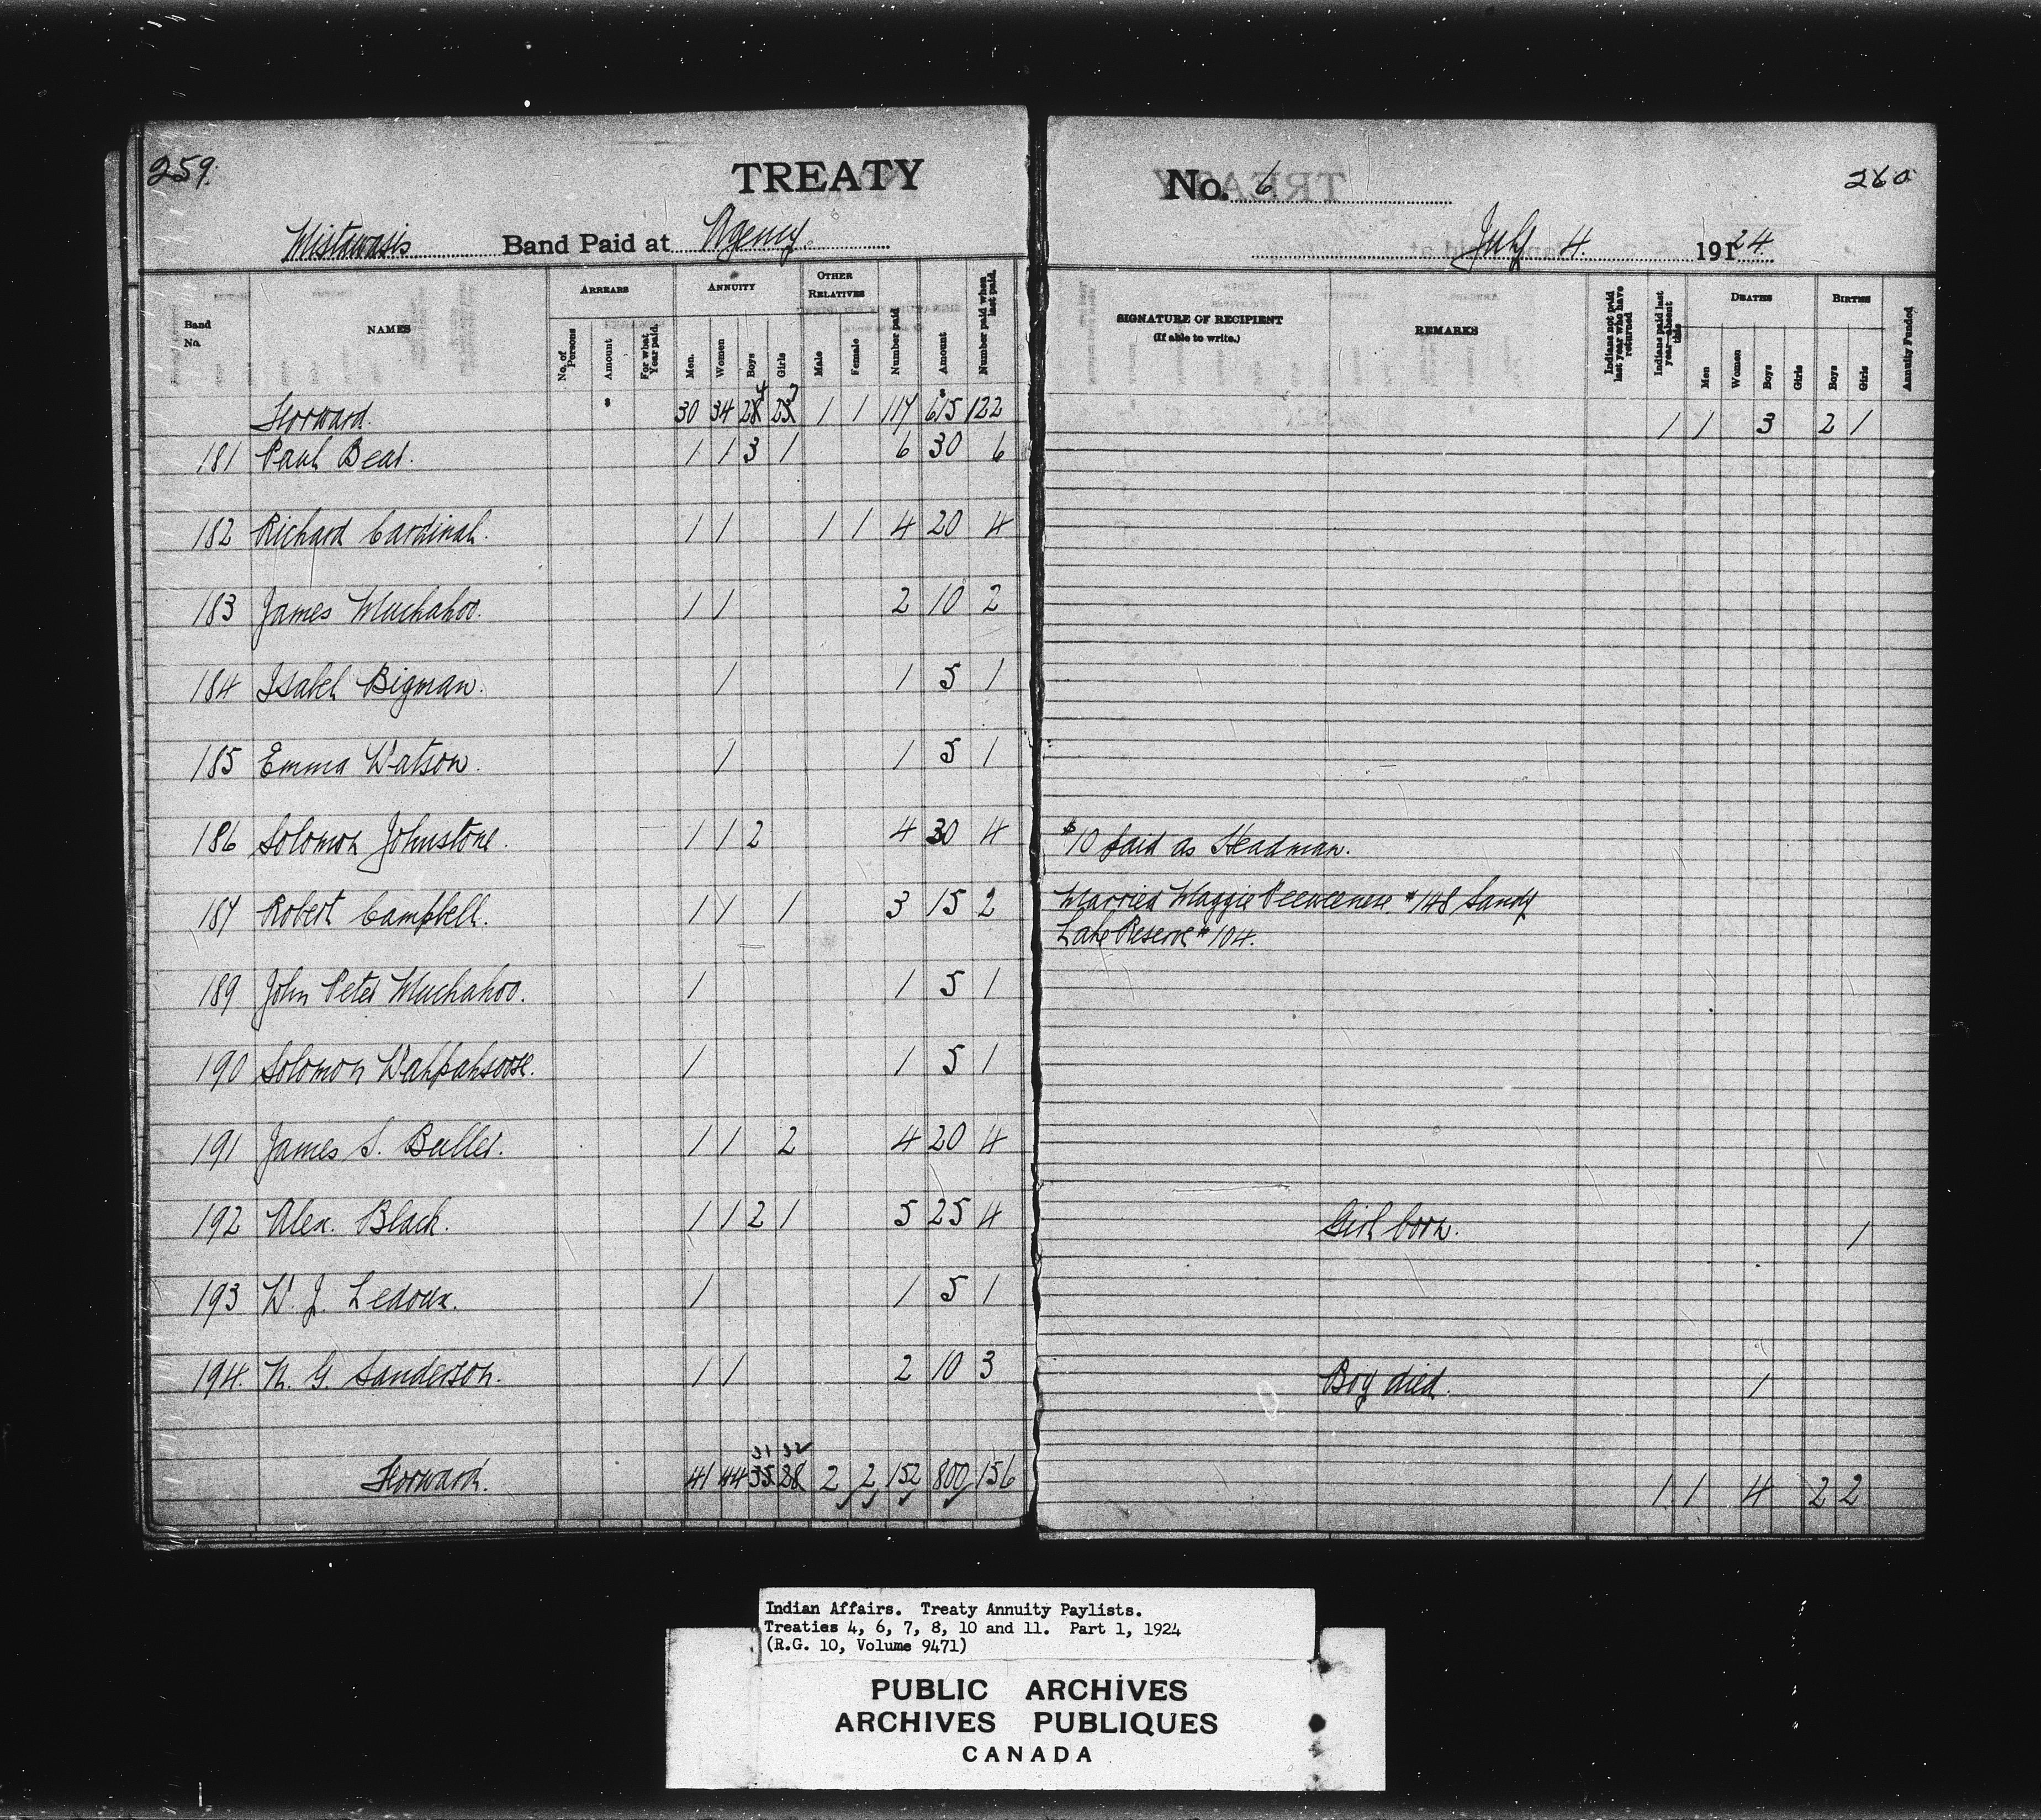 259. TREATY No. 6 260
Mistawasis Band Paid at Agency. July 4. 1924.
Band No. NAMES ARREARS ANNUITY OTHER RELATIVES Number paid Amount Number paid when last paid. SIGNATURE OF RECIPIENT (If able to write.) REMARKS Indians not paid last year who have returned Indians paid last year—absent this DEATHS BIRTHS Annuity Funded
No. of Persons Amount For what Year paid. Men. Women Boys Girls Male Female Men Women Boys Girls Boys Girls
Forward. $ 30 34 28 4 23 1 1 117 $615 122 1 1 3 2 1
181 Paul Bear. 1 1 3 1 6 30 6
182 Richard Cardinal. 1 1 1 1 4 20 4
183 James Muchahoo. 1 1 2 10 2
184 Isabel Bigman. 1 1 5 1
185 Emma Watson. 1 1 5 1
186 Solomon Johnstone. 1 1 2 4 30 4 $10 paid as Headman.
187 Robert Campbell. 1 1 1 3 15 2 Married Maggie #148 Sandy
Lake Reserve #104.
189 John Peter Muchahoo. 1 1 5 1
190 Solomon Wahpahsoose. 1 1 5 1
191 James S. Buller. 1 1 2 4 20 4
192 Alex. Black. 1 1 2 1 5 25 4 Girl born. 1
193 W. J. Ledoux. 1 1 5 1
194. N. G. Sanderson. 1 1 2 10 3 Boy died. 1
31 32
Forward. 41 44 35 28 2 2 152 800 156 1 1 4 2 2
Indian Affairs. Treaty Annuity Paylists.
Treaties 4, 6, 7, 8, 10 and 11. Part 1, 1924
(R.G. 10, Volume 9471)
PUBLIC ARCHIVES
ARCHIVES PUBLIQUES
CANADA